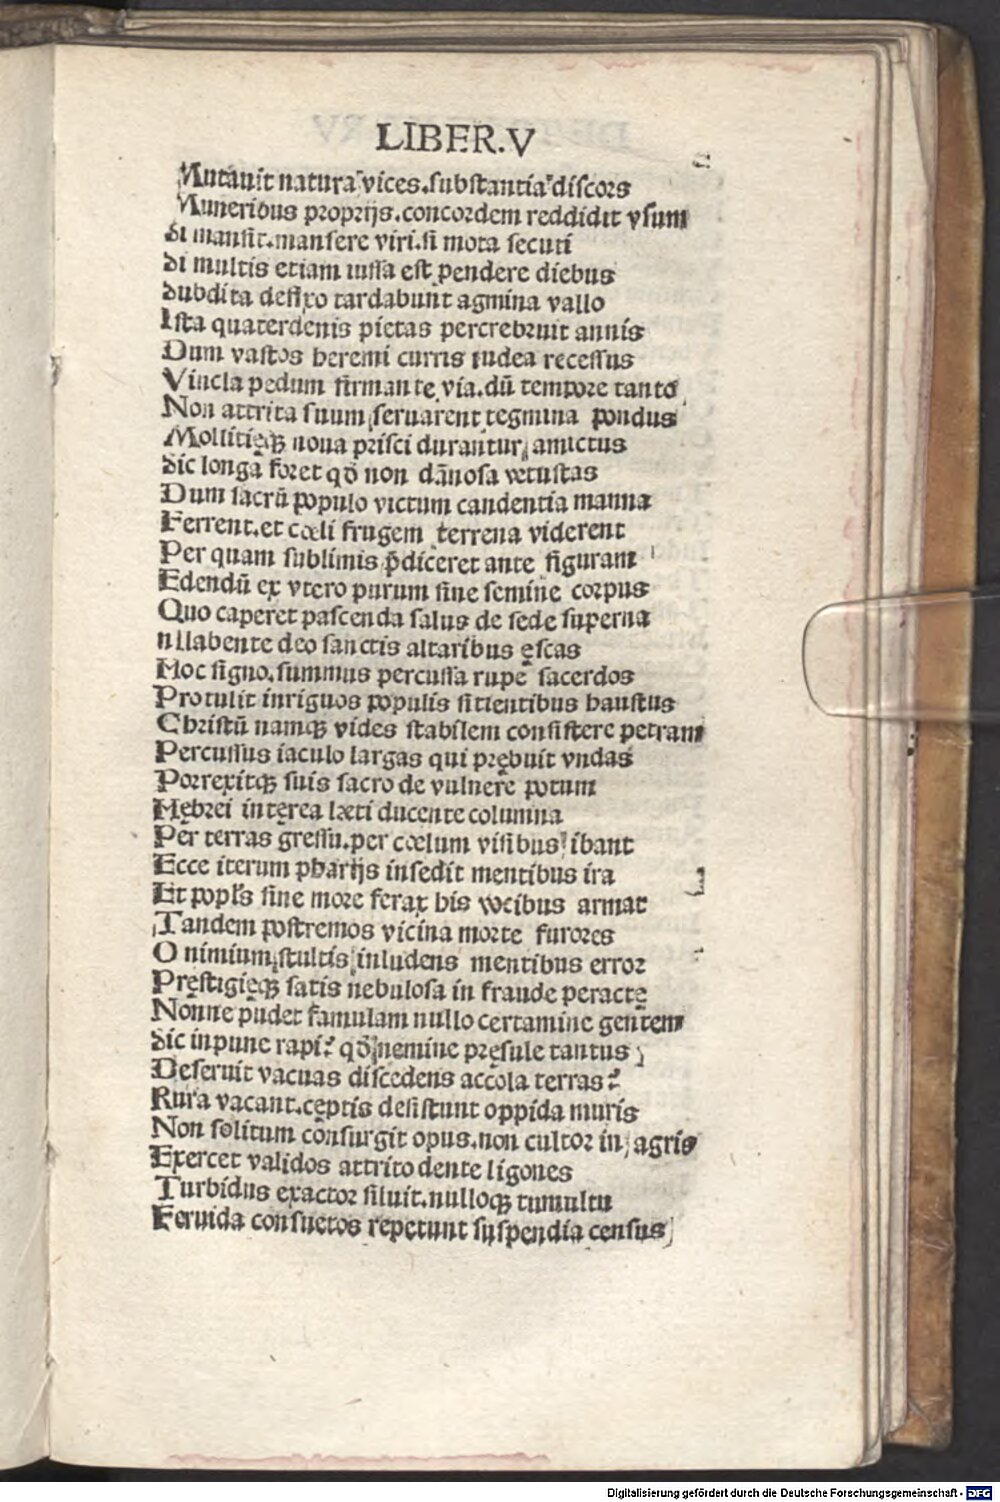 LIBER.V
Mutauit natura vices.substantia discors
Muneribus proprijs.concordem reddidit vsum
Si mansit.mansere viri.si mota secuti
Si multis etiam iussa est pendere diebus
Subdita defixo tardabunt agmina vallo
Ista quaterdenis pietas percrebruit annis
Dum vastos heremi curris iudea recessus
Vincla pedum firmante via.dū tempore tanto
Non attrita suum seruarent tegmina pondus
Mollitięqꝫ noua prisci durantur amictus
Sic longa foret qđ non dānosa vetustas
Dum sacrū populo victum candentia manna
Ferrent.et cœli frugem terrena viderent
Per quam sublimis p̄diceret ante figuram
Edendū ex vtero purum sine semine corpus
Quo caperet pascenda salus de sede superna
Illabente deo sanctis altaribus ęscas
Hoc signo.summus percussa rupe sacerdos
Protulit inriguos populis sitientibus haustus
Christū namqꝫ vides stabilem consistere petram
Percussus iaculo largas qui prębuit vndas
Porrexitqꝫ suis sacro de vulnere potum
Hębrei interea læti ducente columna
Per terras gressu.per cœlum visibus ibant
Ecce iterum pharijs insedit mentibus ira
Et popl's sine more ferax bis vocibus armat
Tandem postremos vicina morte furores
O nimium stultis inludens mentibus error
Pręstigięqꝫ satis nebulosa in fraude peractę
Nonne pudet famulam nullo certamine gentem
Sic inpune rapi? qđ nemine pręsule tantus
Deseruit vacuas discedens accola terras?
Rura vacant.cęptis desistunt oppida muris
Non solitum consurgit opus.non cultor in agris
Exercet validos attrito dente ligones
Turbidus exactor siluit.nulloqꝫ tumultu
Feruida consuetos repetunt suspendia census
Digitalisierung gefördert durch die Deutsche Forschungsgemeinschaft - DFG